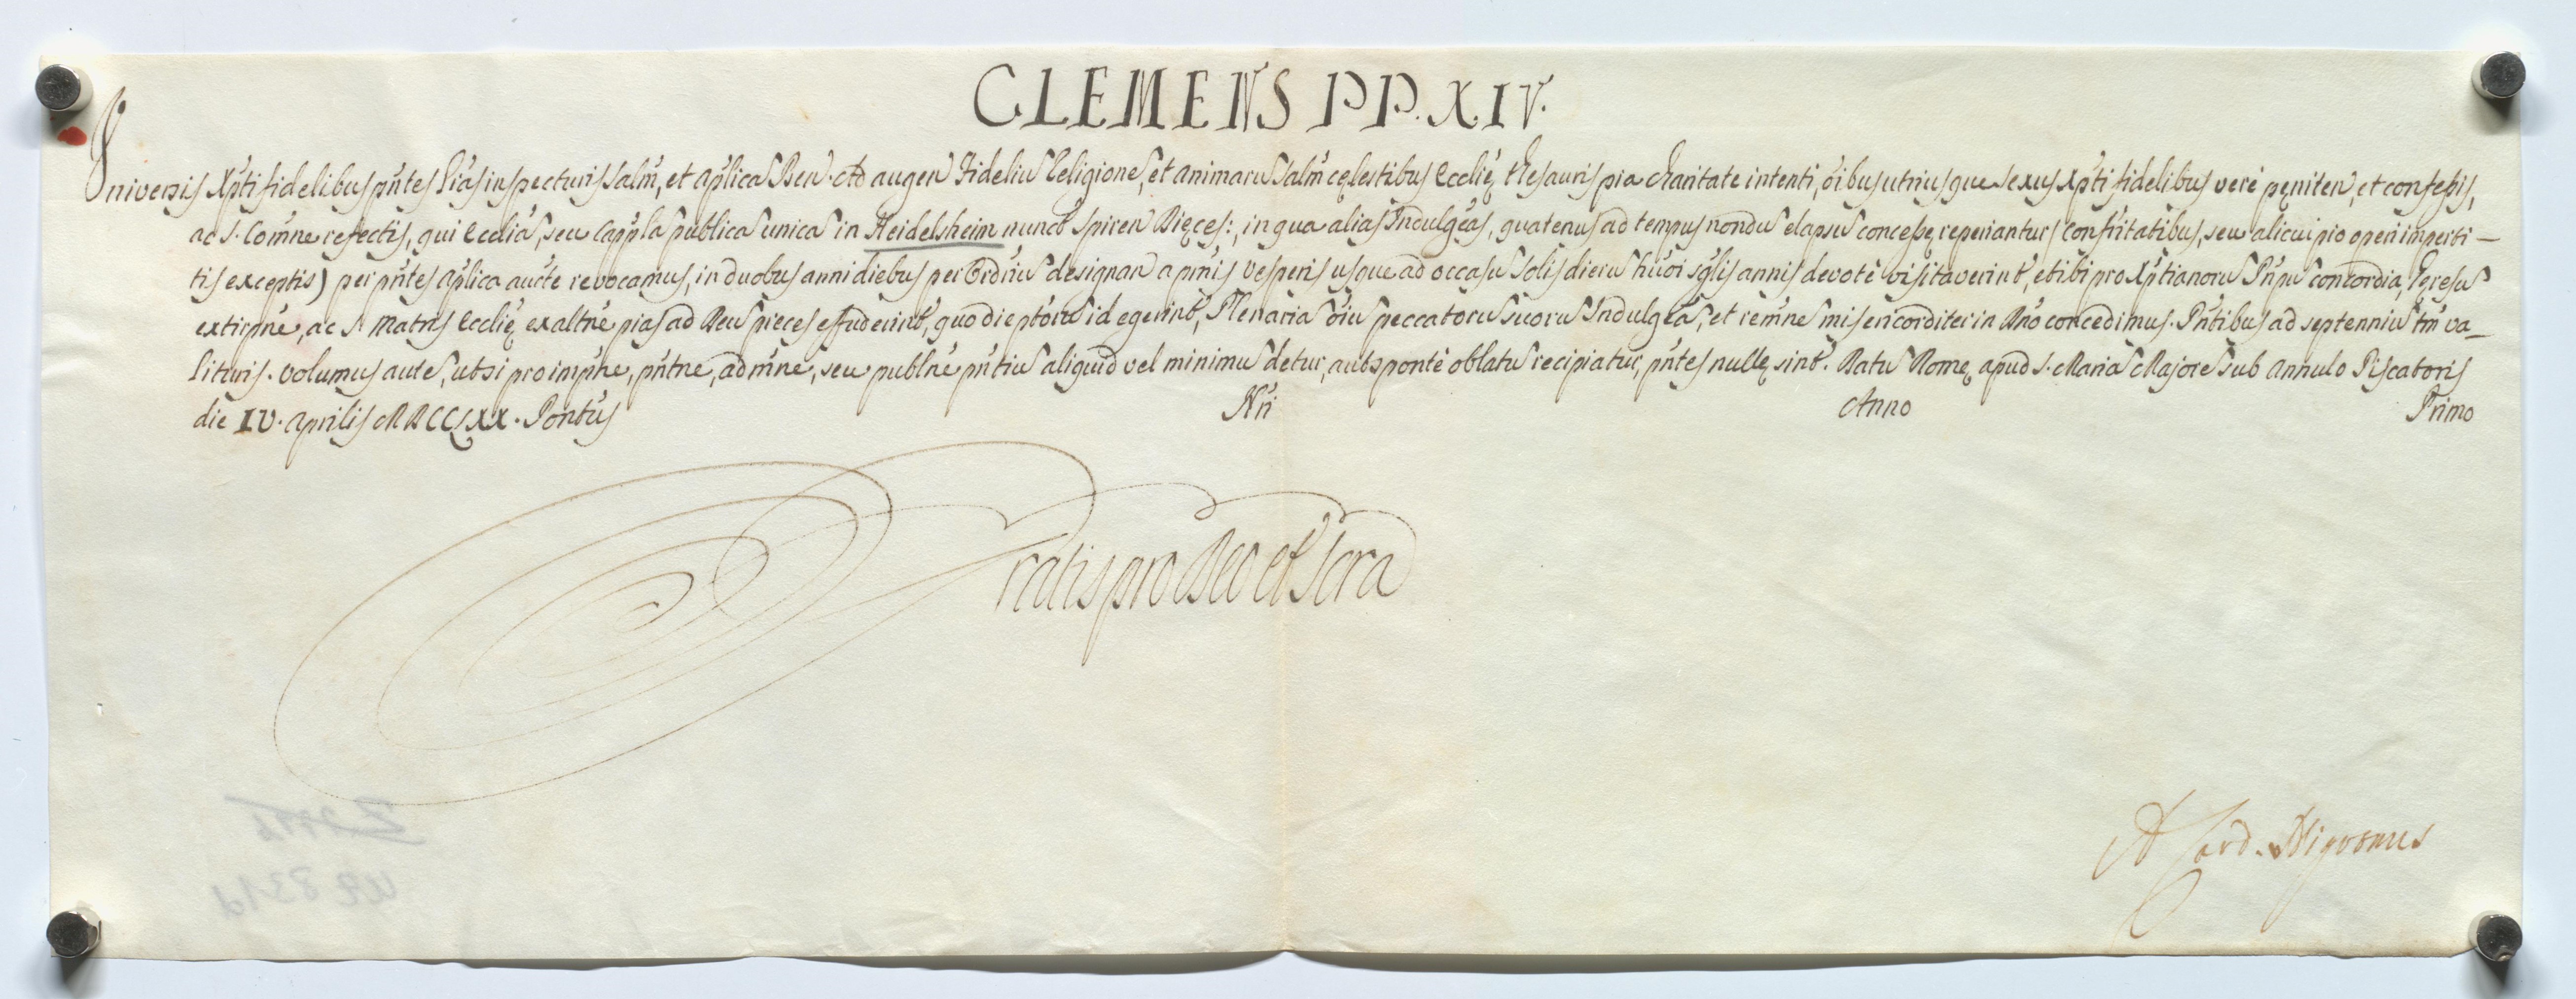 CLEMENS PP. XIV.
Universis Xpti fidelibus pntes Lias inspecturis Salm, et aplica Ben. Ad augen Fideliu Religione, et animaru Salm cęlestibus Ecclię thesauris pia charitate intenti, oibus utriusque sexus Xpti fidelibus verè pęniten, et confessis,
ac S. Comne refectis, qui Eccliã, seu Cappla publica unica in Heidelsheim nuncẽ Spiren Dięces:, in qua alias Indulgeas, quatenus ad tempus nondu elapsu concessę reperiantur (Confritatibus, seu alicui pio operi imperti-
tis exceptis) per pntes aplica aucte revocamus, in duobus anni diebus per Ordriu designan a pmis vesperis usque ad occasu Solis dieru huõi sglis annis devotè visitaverint, et ibi pro Xptianoru Pnpu concordia, Hęresu
extirpne, ac S. Matris Ecclię exaltne pias ad Deu preces effuderint, quo die ptoru id egerint, Plenaria oiu peccatoru suoru Indulgea, et remne misericorditer in Dno concedimus. Pntibus ad septenniu tm va-
lituris. Volumus aute, ut si pro impne, pntne, admne, seu publne pntiu aliquid vel minimu detur, aut sponte oblatu recipiatur, pntes nullę sint. Datu Romę apud S. Maria Majore sub Annulo Piscatoris
die IV. Aprilis MDCCLXX. Pontus Nri Anno Primo
Gratis pro Deo et Scra
A Card. Nigronus